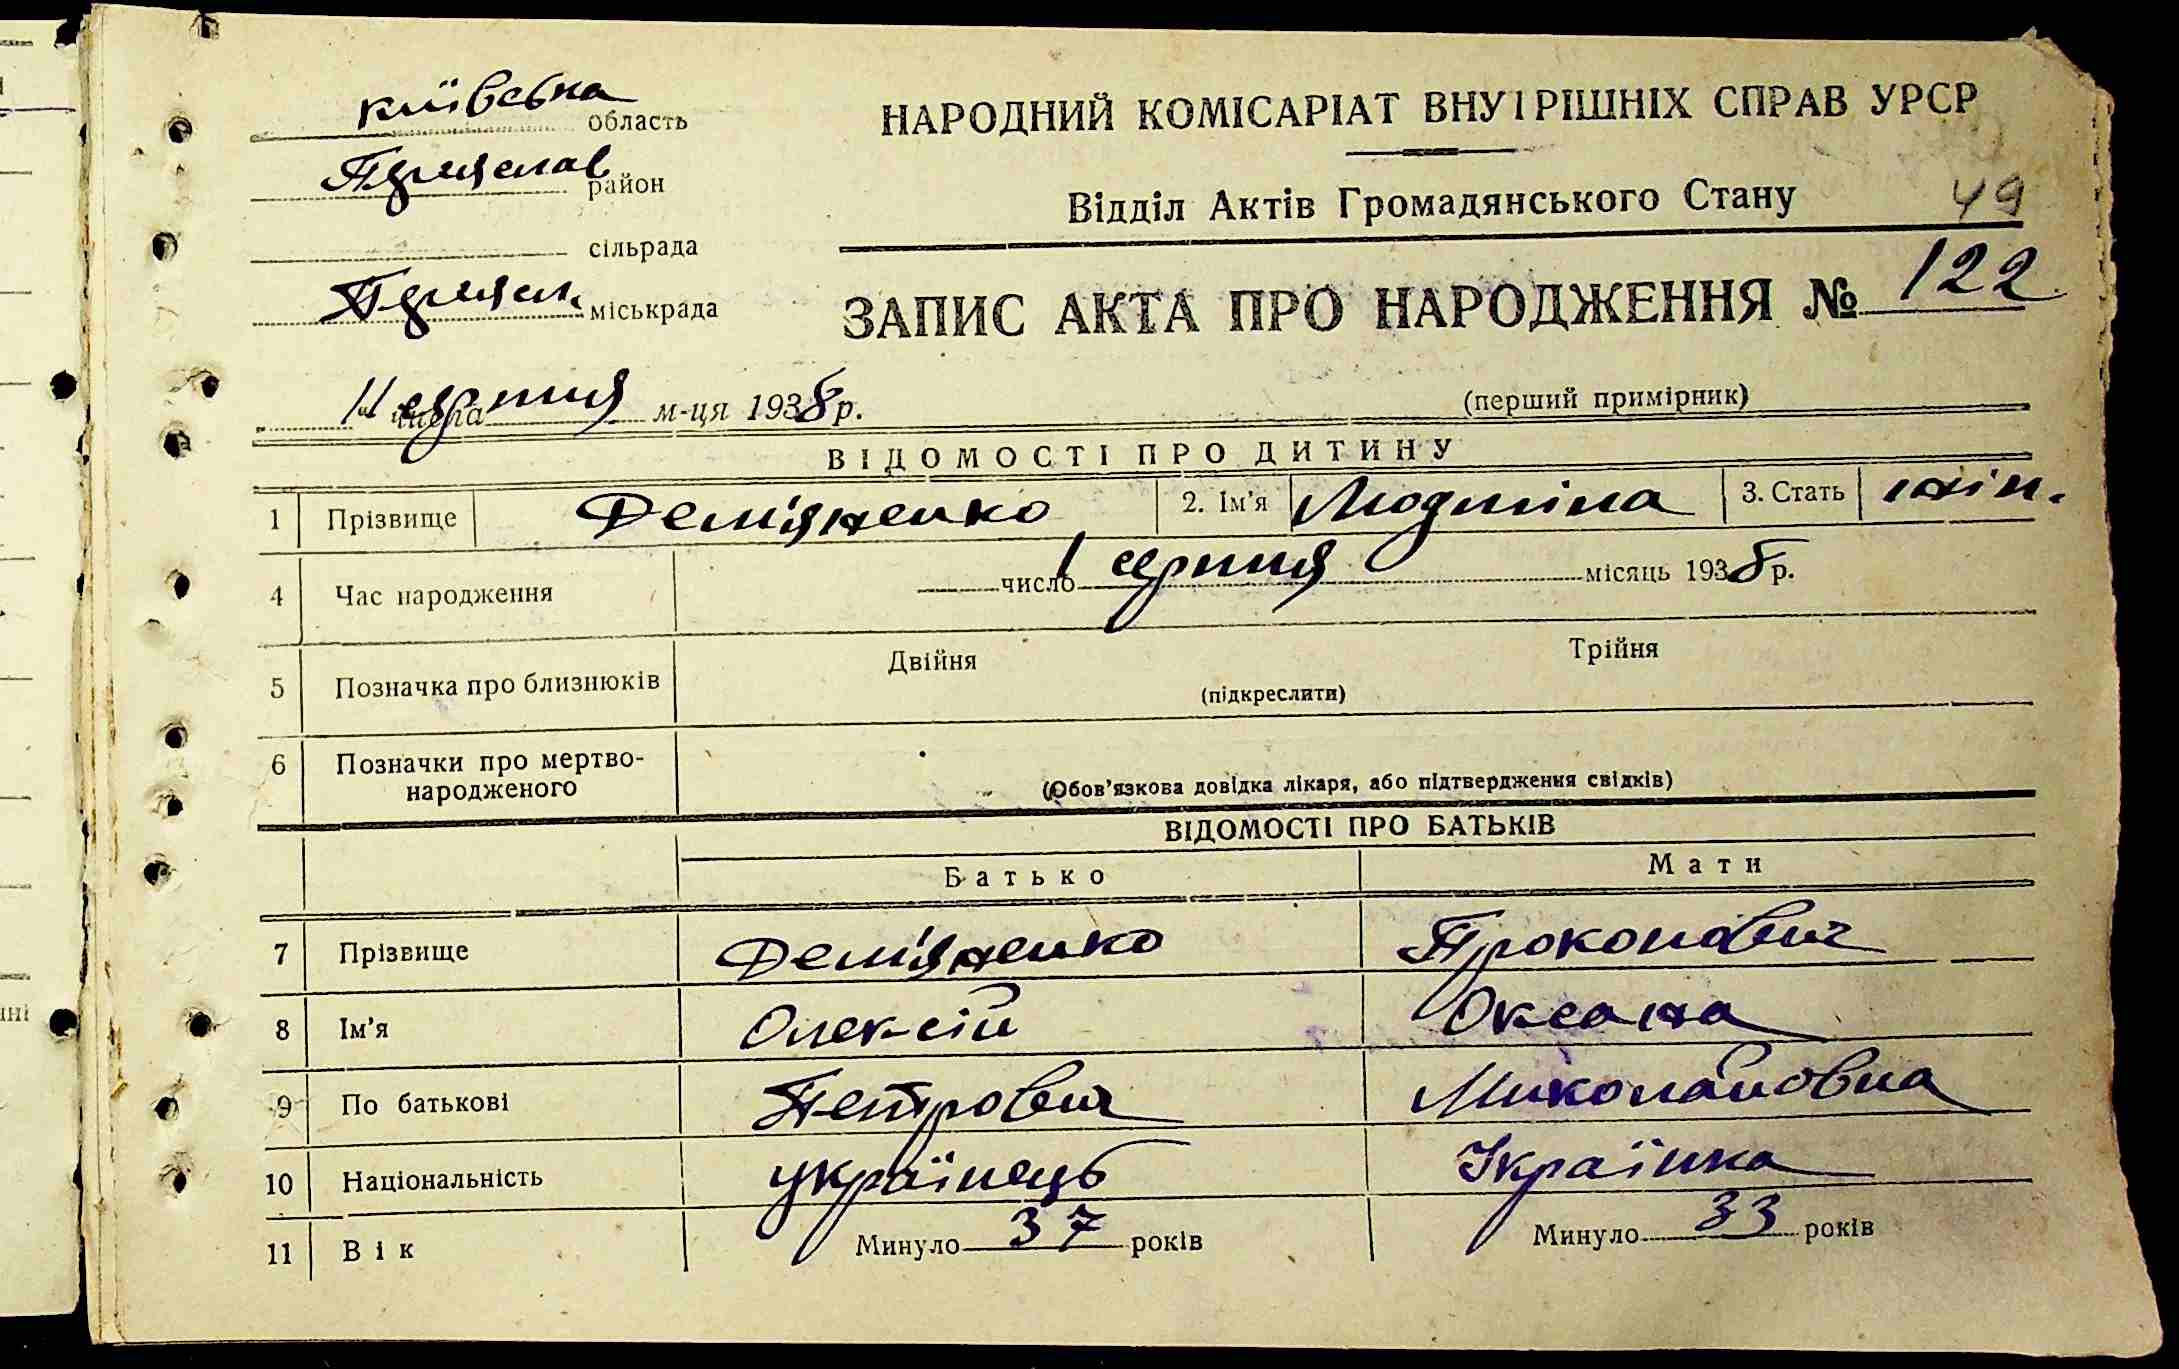 київська область
Переяслав район
сільрада
Переясл. міськрада
НАРОДНИЙ КОМІСАРІАТ ВНУТРІШНІХ СПРАВ УРСР
Відділ Актів Громадянського Стану
49
ЗАПИС АКТА ПРО НАРОДЖЕННЯ № 122
11 числа серпня м-ця 1938 р.
(перший примірник)
ВІДОМОСТІ ПРО ДИТИНУ
1 Прізвище Дем'яненко 2. Ім'я Людміла 3. Стать жін.
4 Час народження 1 число серпня місяць 1938 р.
5 Позначка про близнюків Двійня Трійня
(підкреслити)
6 Позначки про мертво-
народженого
(Обов'язкова довідка лікаря, або підтвердження свідків)
ВІДОМОСТІ ПРО БАТЬКІВ
Батько Мати
7 Прізвище Дем'яненко Прокопович
8 Ім'я Олексій Оксана
9 По батькові Петрович Миколайовна
10 Національність українець Українка
11 Вік Минуло 37 років Минуло 33 років